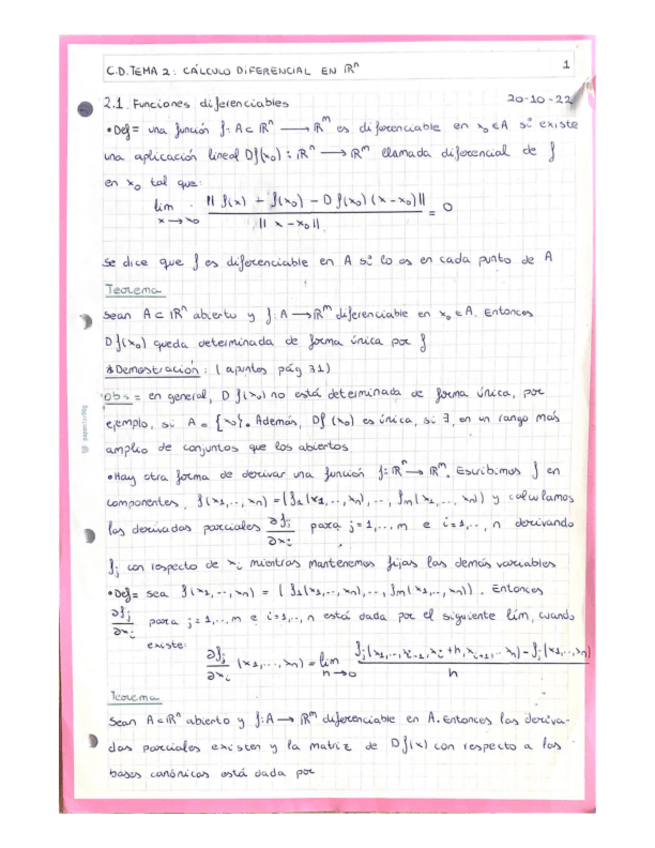 C.D. TEMA 2: CÁLCULO DIFERENCIAL EN ℝⁿ 1
2.1. Funciones diferenciables 20-10-22
• Def = una función f: A ⊂ ℝⁿ → ℝᵐ es diferenciable en x₀ ∈ A si existe
una aplicación lineal Df(x₀): ℝⁿ → ℝᵐ llamada diferencial de f
en x₀ tal que:
lim x→x₀ ‖f(x) + f(x₀) − Df(x₀)(x−x₀)‖ / ‖x−x₀‖ = 0
Se dice que f es diferenciable en A si lo es en cada punto de A
Teorema
Sean A ⊂ ℝⁿ abierto y f: A → ℝᵐ diferenciable en x₀ ∈ A. Entonces
Df(x₀) queda determinada de forma única por f
*Demostración: (apuntes pág 31)
Obs = en general, Df(x₀) no está determinada de forma única, por
ejemplo, si A = {x₀}. Además, Df(x₀) es única, si ∃, en un rango más
amplio de conjuntos que los abiertos
• Hay otra forma de derivar una función f: ℝⁿ → ℝᵐ. Escribimos f en
componentes, f(x₁,..,xₙ) = (f₁(x₁,..,xₙ),..,fₘ(x₁,..,xₙ)) y calculamos
las derivadas parciales ∂fⱼ/∂xᵢ para j=1,..,m e i=1,..,n derivando
fⱼ con respecto de xᵢ mientras mantenemos fijas las demás variables
• Def = sea f(x₁,..,xₙ) = (f₁(x₁,..,xₙ),..,fₘ(x₁,..,xₙ)). Entonces
∂fⱼ/∂xᵢ para j=1,..,m e i=1,..,n está dada por el siguiente lím, cuando
existe:
∂fⱼ/∂xᵢ (x₁,...,xₙ) = lim h→0 fⱼ(x₁,..,xᵢ₋₁,xᵢ+h,xᵢ₊₁,..xₙ) − fⱼ(x₁,..,xₙ) / h
Teorema
Sean A ⊂ ℝⁿ abierto y f: A → ℝᵐ diferenciable en A. Entonces las deriva-
das parciales existen y la matriz de Df(x) con respecto a las
bases canónicas está dada por